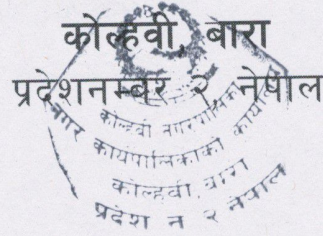 कोल्हवी, बारा
प्रदेशनम्बर २ नेपाल
कोल्हवी नगरपालिका
नगर कार्यपालिकाको कार्यालय
कोल्हवी, बारा
प्रदेश न २ नेपाल